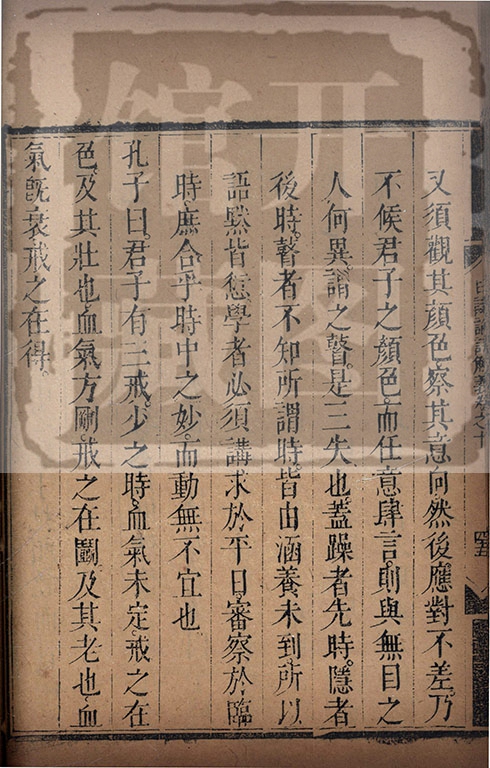 又須觀其顏色察其意向然後應對不差乃
不候君子之顏色而任意肆言則與無目之
人何異謂之瞽是三失也蓋躁者先時隱者
後時瞽者不知所謂時皆由涵養未到所以
語默皆愆學者必須講求於平日審察於臨
時庶合乎時中之妙而動無不宜也
孔子曰君子有三戒少之時血氣未定戒之在
色及其壯也血氣方剛戒之在鬭及其老也血
氣旣衰戒之在得
日講
解義卷之十
開圖
館藏